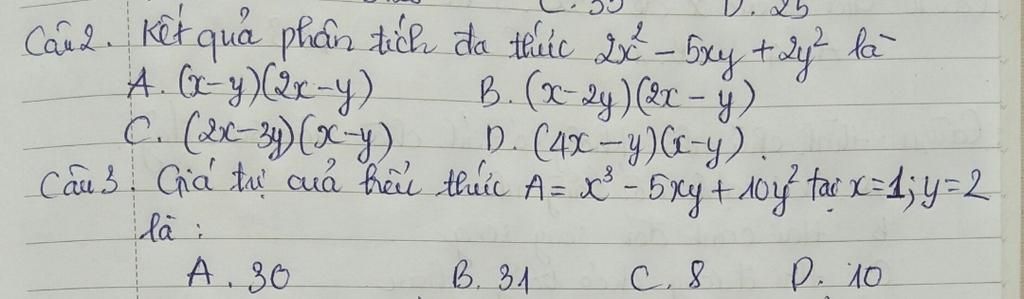 C. 35 D. 25
Câu 2. Kết quả phân tích đa thức 2x² - 5xy + 2y² là
A. (x-y)(2x-y) B. (x-2y)(2x-y)
C. (2x-3y)(x-y) D. (4x-y)(x-y).
Câu 3. Giá trị của biểu thức A = x³ - 5xy + 10y² tại x=1; y=2
là :
A. 30 B. 31 C. 8 D. 10